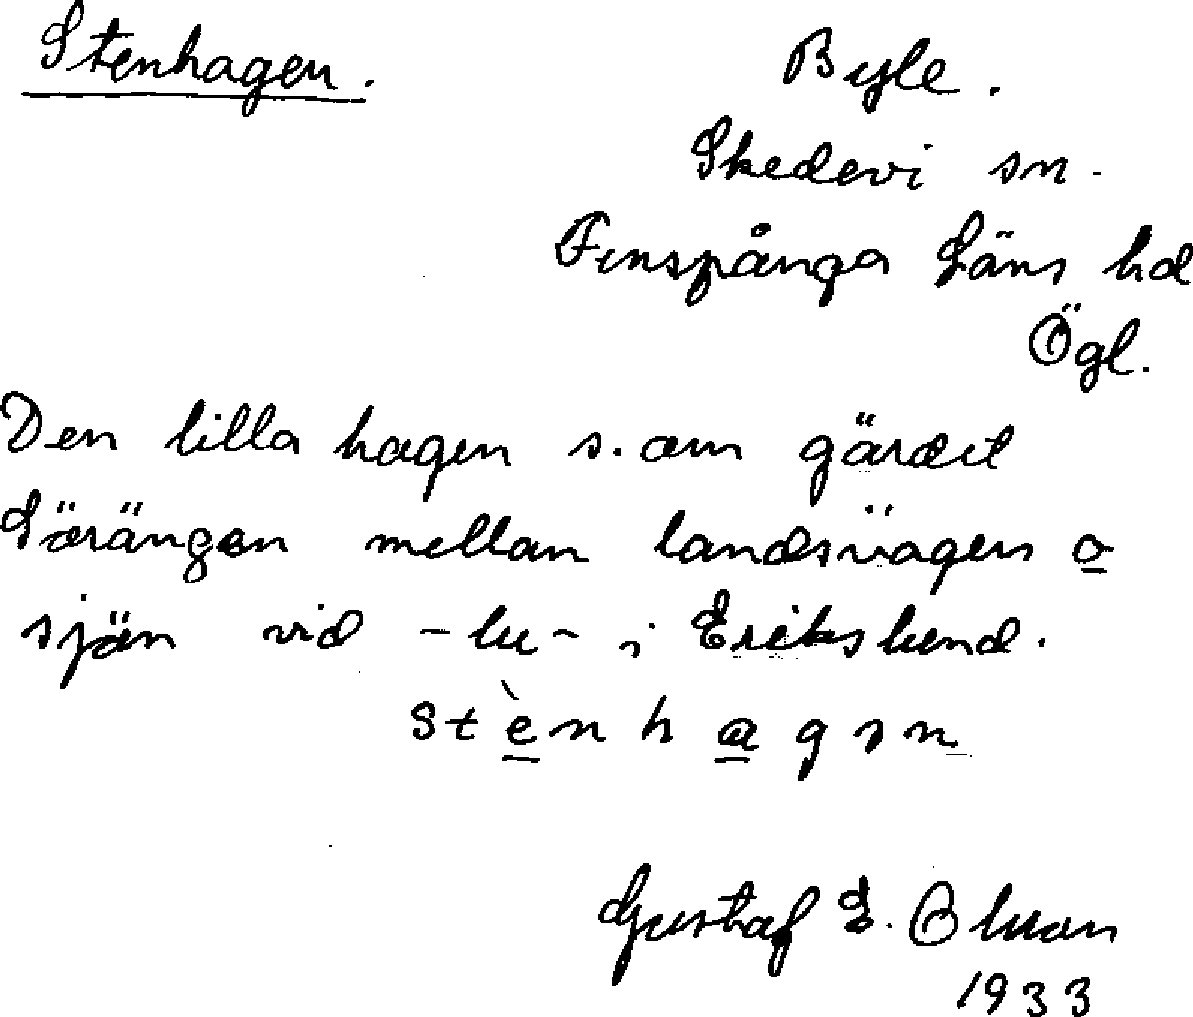 Stenhagen.
Byle.
Skedevi sn.
Finspånga Läns hd
Ögl.
Den lilla hagen s. om gärdet
Sörängen mellan landsvägen o
sjön vid -lu- i Erikslund.
stènhagən
Gustaf E. Olsson
1933